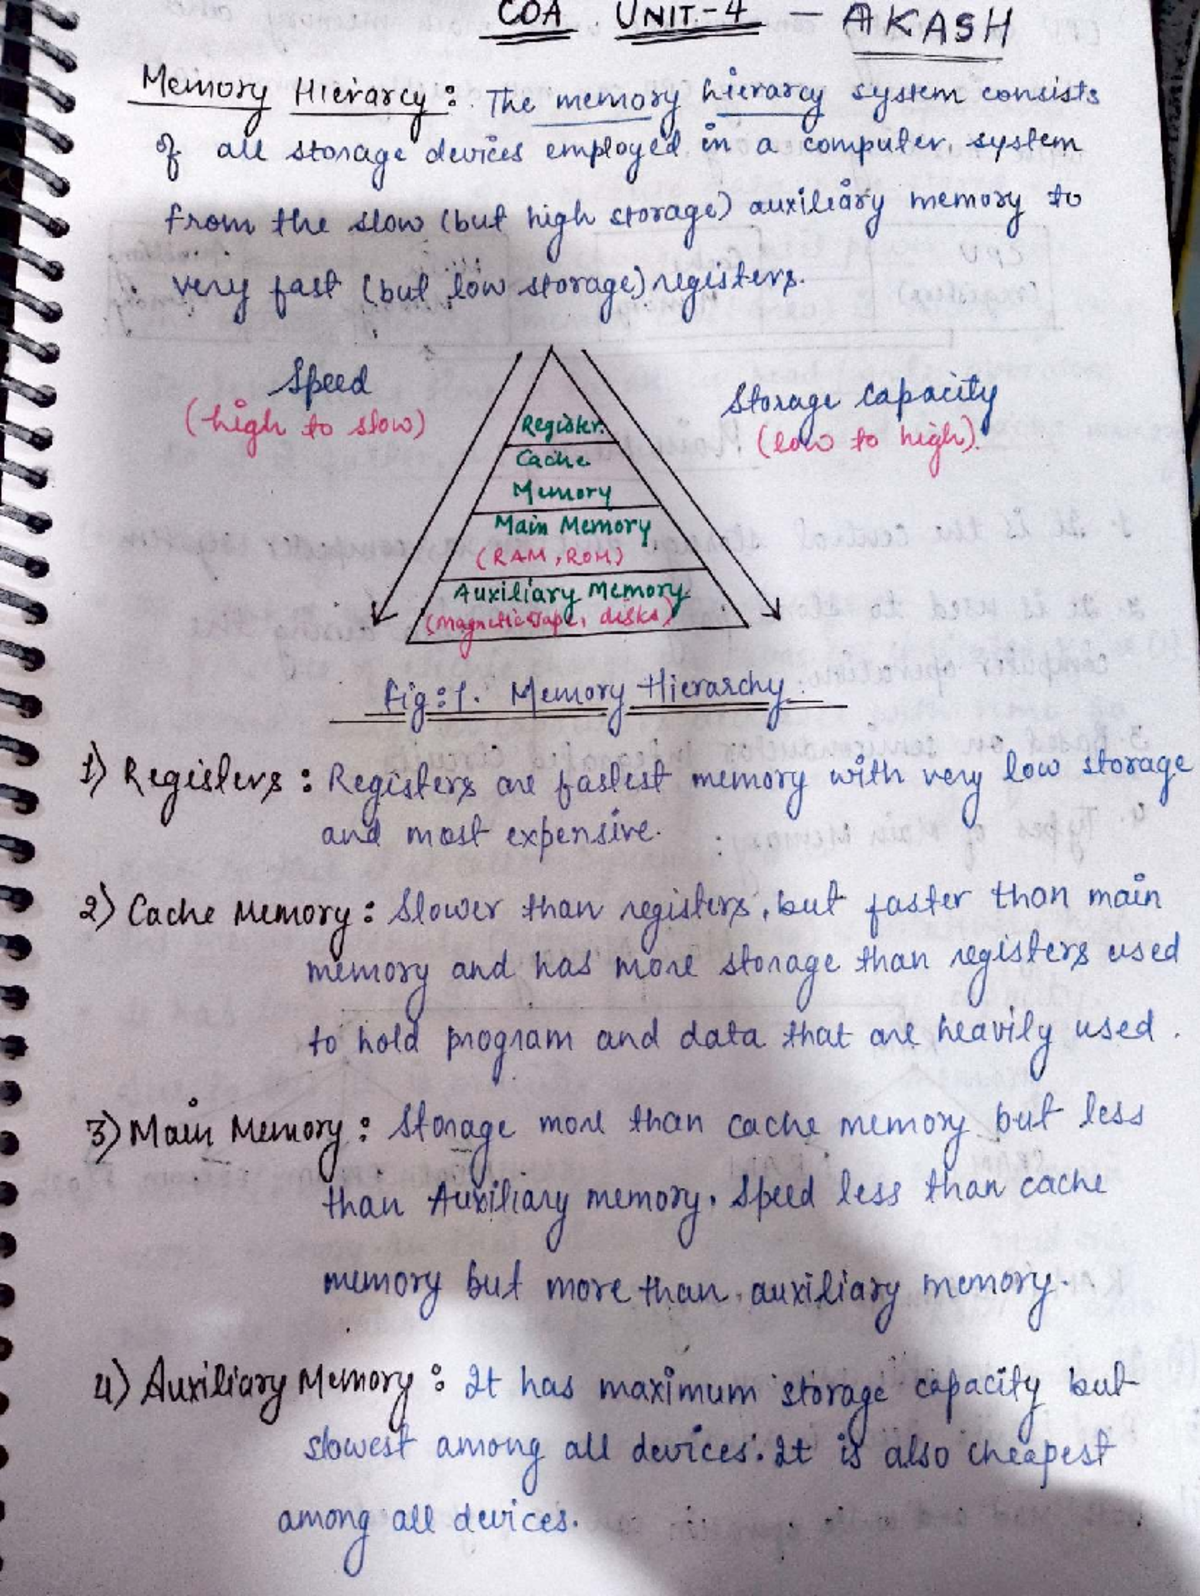 COA UNIT-4 - AKASH
Memory Hierarcy : The memory hierarcy system consists
of all storage devices employed in a computer system
from the slow (but high storage) auxiliary memory to
very fast (but low storage) registers.
Speed
(high to slow)
Storage Capacity
(low to high).
Register
Cache
Memory
Main Memory
(RAM, ROM)
Auxiliary Memory
(Magnetic Tape, disks)
Fig:1. Memory Hierarchy.
1) Registers : Registers are fastest memory with very low storage
and most expensive.
2) Cache Memory : Slower than registers, but faster than main
memory and has more storage than registers used
to hold program and data that are heavily used.
3) Main Memory : Storage more than cache memory but less
than Auxiliary memory. Speed less than cache
memory but more than auxiliary memory.
4) Auxiliary Memory : It has maximum storage capacity but
slowest among all devices. It is also cheapest
among all devices.